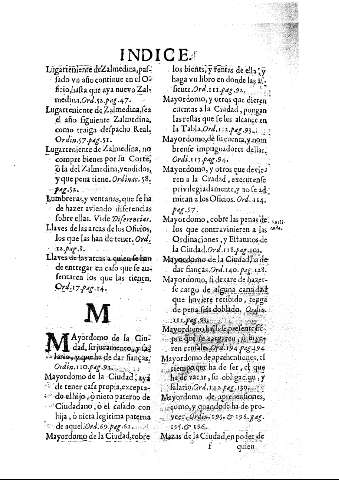 INDICE.
Lugarteniente de Zalmedina, pas-
sado vn año continue en el O-
ficio, hasta que aya nuevo Zal-
medina. Ord. 52. pag. 47.
Lugarteniente de Zalmedina, sea
el año siguiente Zalmedina,
como traiga despacho Real,
Ordin. 57. pag. 51.
Lugarteniente de Zalmedina, no
compre bienes por su Corte,
ò la del Zalmedina, vendidos,
y que pena tiene. Ordinac. 58.
pag. 52.
Lumbreras, y ventanas, que se ha
de hazer aviendo diferencias
sobre ellas. Vide Diferencias.
Llaves de las arcas de los Oficios,
los que las han de tener. Ord.
pag. 8.
Llaves de las arcas a quien se han
de entregar en caso que se au-
sentaren los que las tienen.
Ord. 17. pag. 14.
M
Mayordomo de la Ciu-
dad, su juramento, y sa-
lario, y que ha de dar fianças.
Ordin. 110. pag. 91.
Mayordomo de la Ciudad, aya
de tener casa propia, excepta-
do el hijo, ò nieto paterno de
Ciudadano, ò el casado con
hija, ò nieta legitima paterna
de aquel. Ord. 69. pag. 61.
Mayordomo de la Ciudad, cobre
los bienes, y rentas de ella, y
haga vn libro en donde las as-
siente. Ord. 111. pag. 92.
Mayordomo, y otros que dieren
cuentas a la Ciudad, pongan
las restas que se les alcançan en
la Tabla. Ord. 112. pag. 94.
Mayordomo, de su cuenta, y nom-
brense impugnadores de las,
Ord. 113. pag. 94.
Mayordomo, y otros que devie-
ren a la Ciudad, executense
privilegiadamente, y no se ad-
mitan a los Oficios. Ord. 114.
pag. 97.
Mayordomo, cobre las penas de
los que contravinieren a las
Ordinaciones, y Estatutos de
la Ciudad. Ord. 118. pag. 101.
Mayordomo de la Ciudad,
fianças. Ord. 140. pag. 128.
Mayordomo, si dexare de hazer-
se cargo de alguna cantidad
que huviere recibido, tenga
de pena seis doblado. Ordin.
pag. 93.
Mayordomo
ven censales. Ord. 194. pag. 194.
Mayordomo de aprehensiones, el
tiempo que ha de ser, el que
ha de vacar, su obligacion, y
salario.
Mayordomo de aprehensiones,
como, y quando se ha de pro-
veer. Ordin. 195. & 196.
Mazas de la Ciudad, en poder de
quien